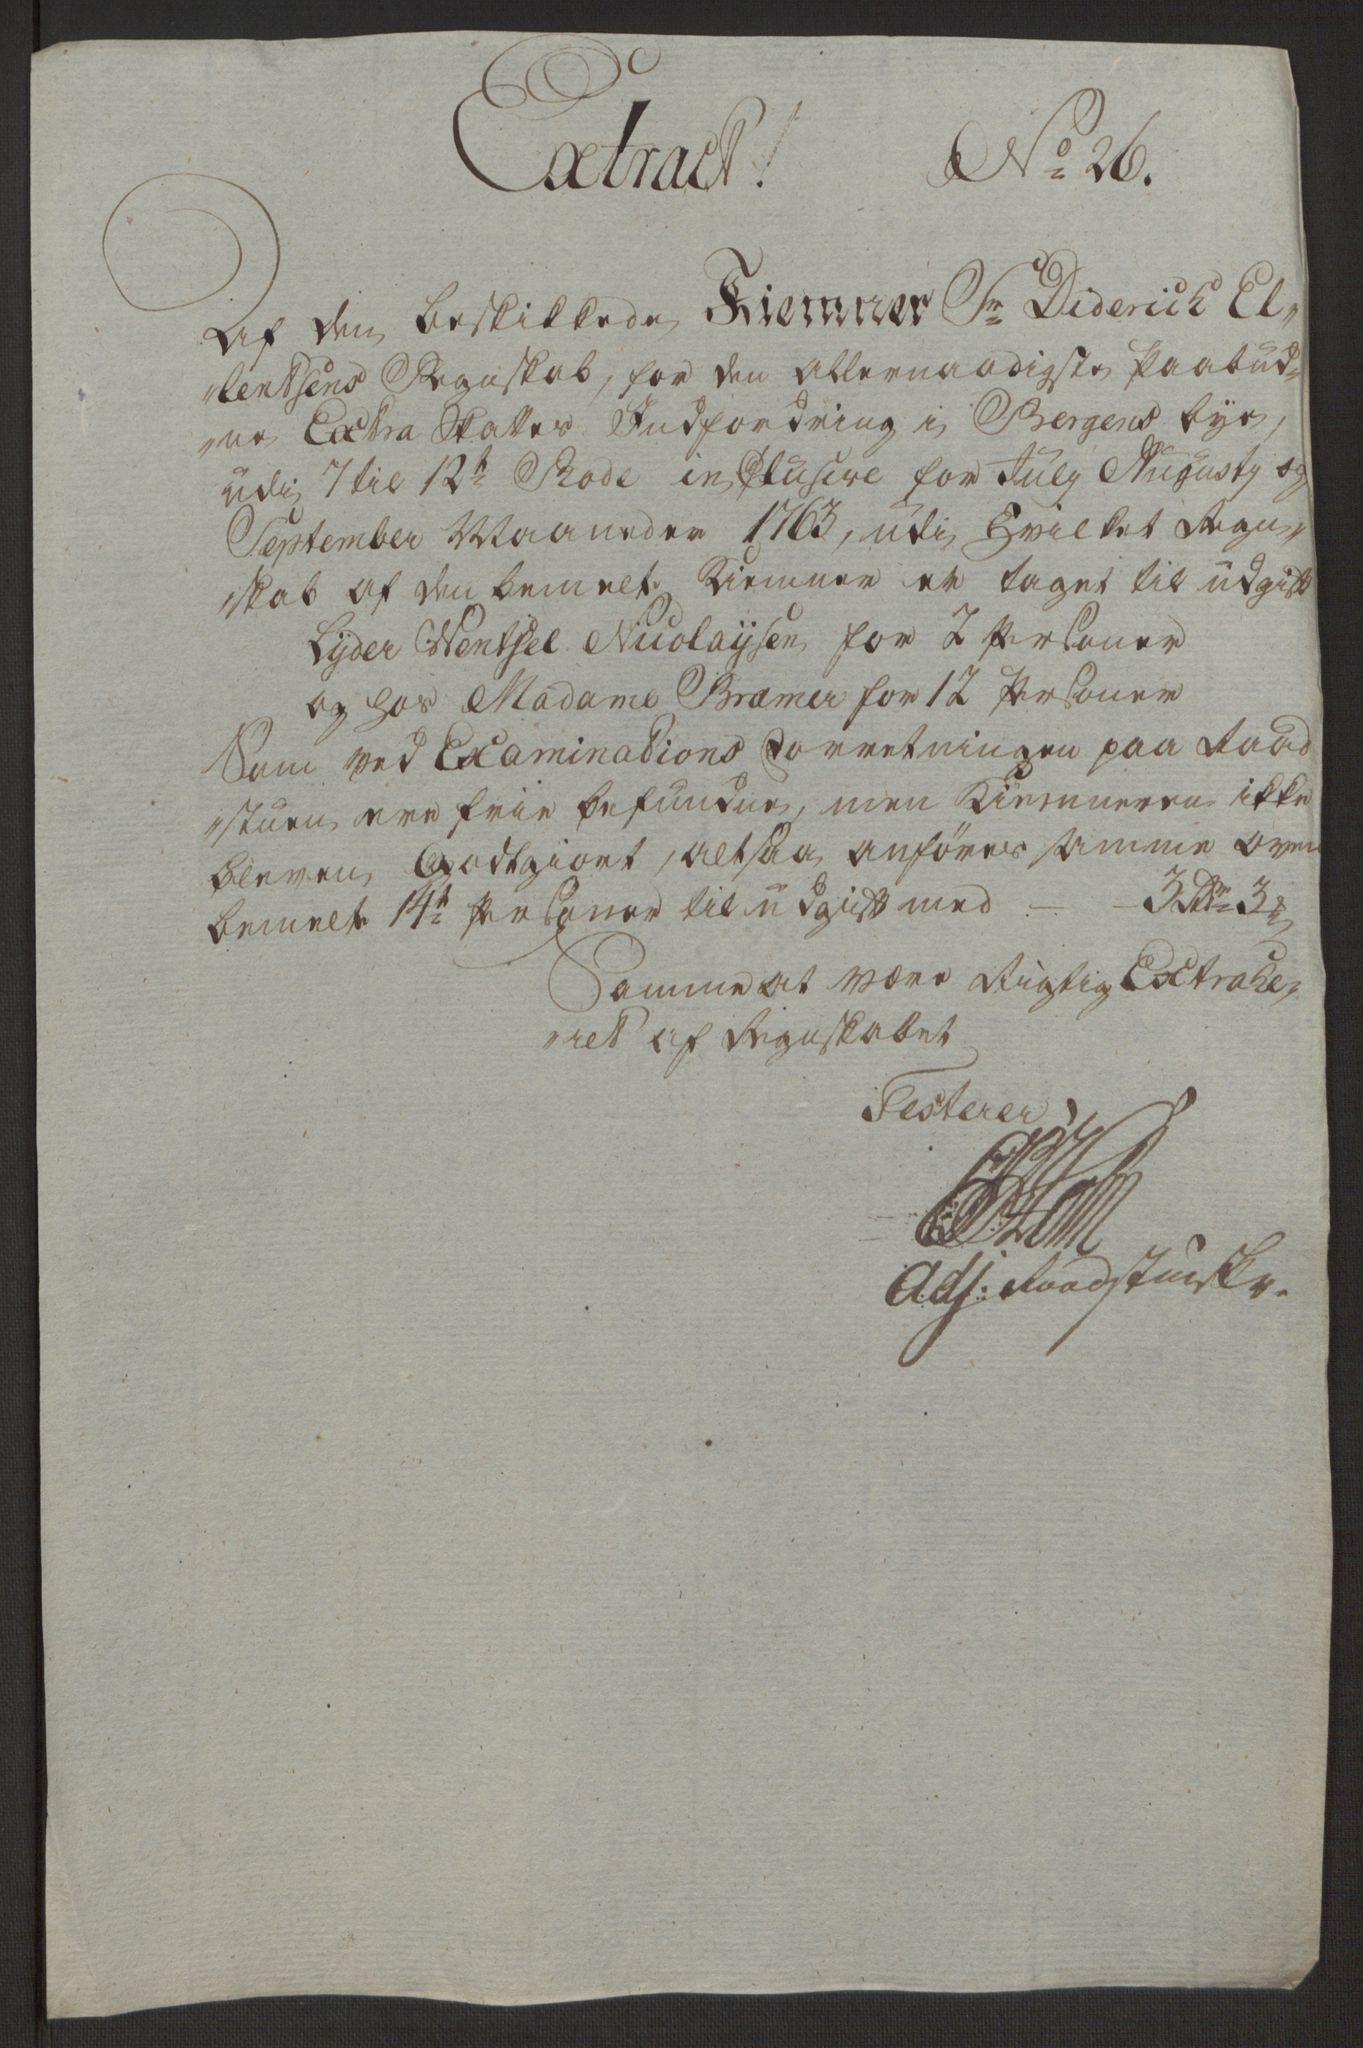 Extract! No 26.
Af den beskikkede Kiemner Sr Diderich El-
lertsens Regnskab, for den allernaadigste Paabud-
ne Extra Skattes Indfordring i Bergens bye,
udi 7 til 12te Rode inclusive for July Augusty og
September Maaneder 1763, udi Hvilket Regn-
skab af den bemelte Kiemner er taget til udgift
Lyder Wentsel Nicolaysen for 2 Personer
og hos Madame Bræmer for 12 Personer
Som ved Examinations Forretningen paa Raad
stuen ere frie befundne, men Kiemneren ikke
bleven Godtgiort, altsaa anføres samme oven
bemelte 14te Personer til udgift med - - 3 Rdr 3
Samme at være Rigtig Extrahe-
ret af Regnskabet
Testerer
Adj: Raadstueskr.